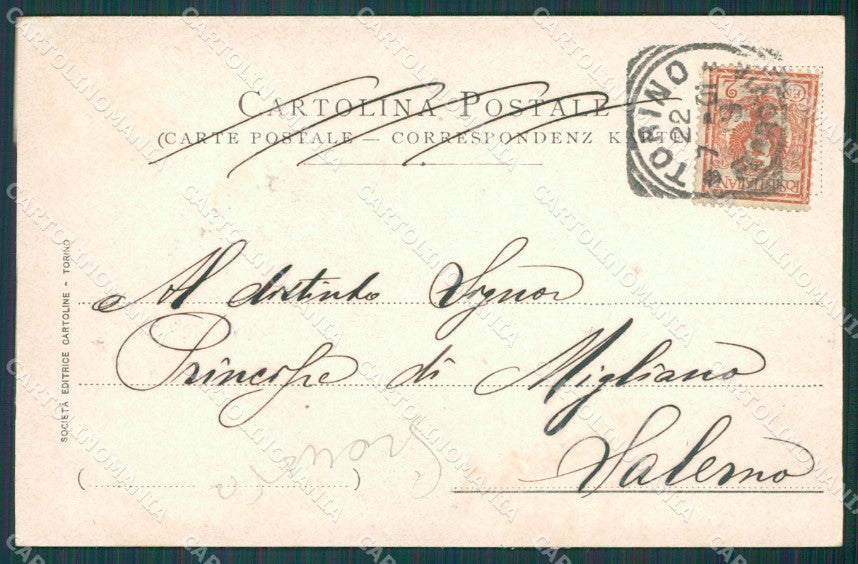 CARTOLINA POSTALE
(CARTE POSTALE — CORRESPONDENZ KARTE
TORINO
22
Al distinto Signor
Principe di Migliano
Salerno
SOCIETÀ EDITRICE CARTOLINE - TORINO
( )
CARTOLINOMANIA